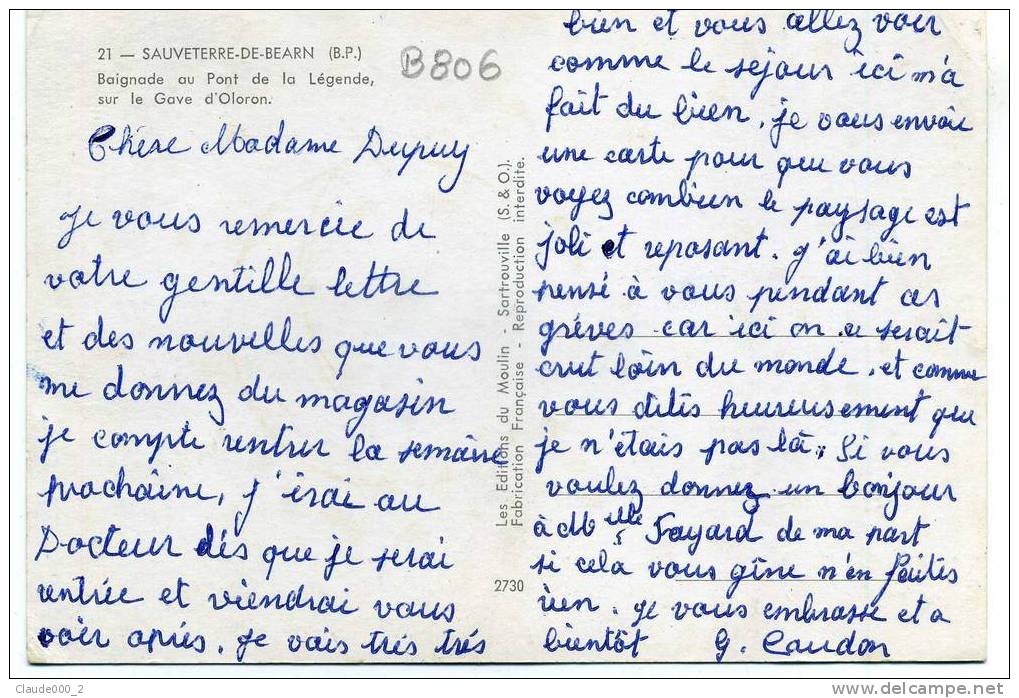 21 — SAUVETERRE-DE-BEARN (B.P.)
Baignade au Pont de la Légende,
sur le Gave d'Oloron.
B806
Chère Madame Dupuy
Je vous remercie de
votre gentille lettre
et des nouvelles que vous
me donnez du magasin
je compte rentrer la semaine
prochaine, j'irai au
Docteur dès que je serai
rentrée et viendrai vous
voir après. Je vais très très
Les Editions du Moulin - Sartrouville (S. & O.).
Fabrication Française - Reproduction interdite.
2730
bien et vous allez voir
comme le séjour ici m'a
fait du bien, je vous envoie
une carte pour que vous
voyez combien le paysage est
joli et reposant. J'ai bien
pensé à vous pendant ces
grèves car ici on se serait
crut loin du monde, et comme
vous dites heureusement que
je n'étais pas là. Si vous
voulez donnez un bonjour
à Melle Fayard de ma part
si cela vous gêne n'en faites
rien. Je vous embrasse et a
bientôt G. Caudon
Claude000_2
www.delcampe.net